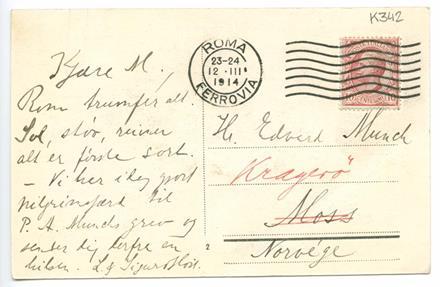 K342
ROMA
23-24
12 · III
1914
FERROVIA
Kjære M,
Rom triumfer alt.
Sol, støv, ruiner
alt er første sort.
– Vi har i dag gjort
pilgrimsfærd til
P. A. Munchs grav og
sender dig derfra en
hilsen. L & Sigurd Høst.
2
H. Edvard Munch
Kragerö
Moss
Norvége